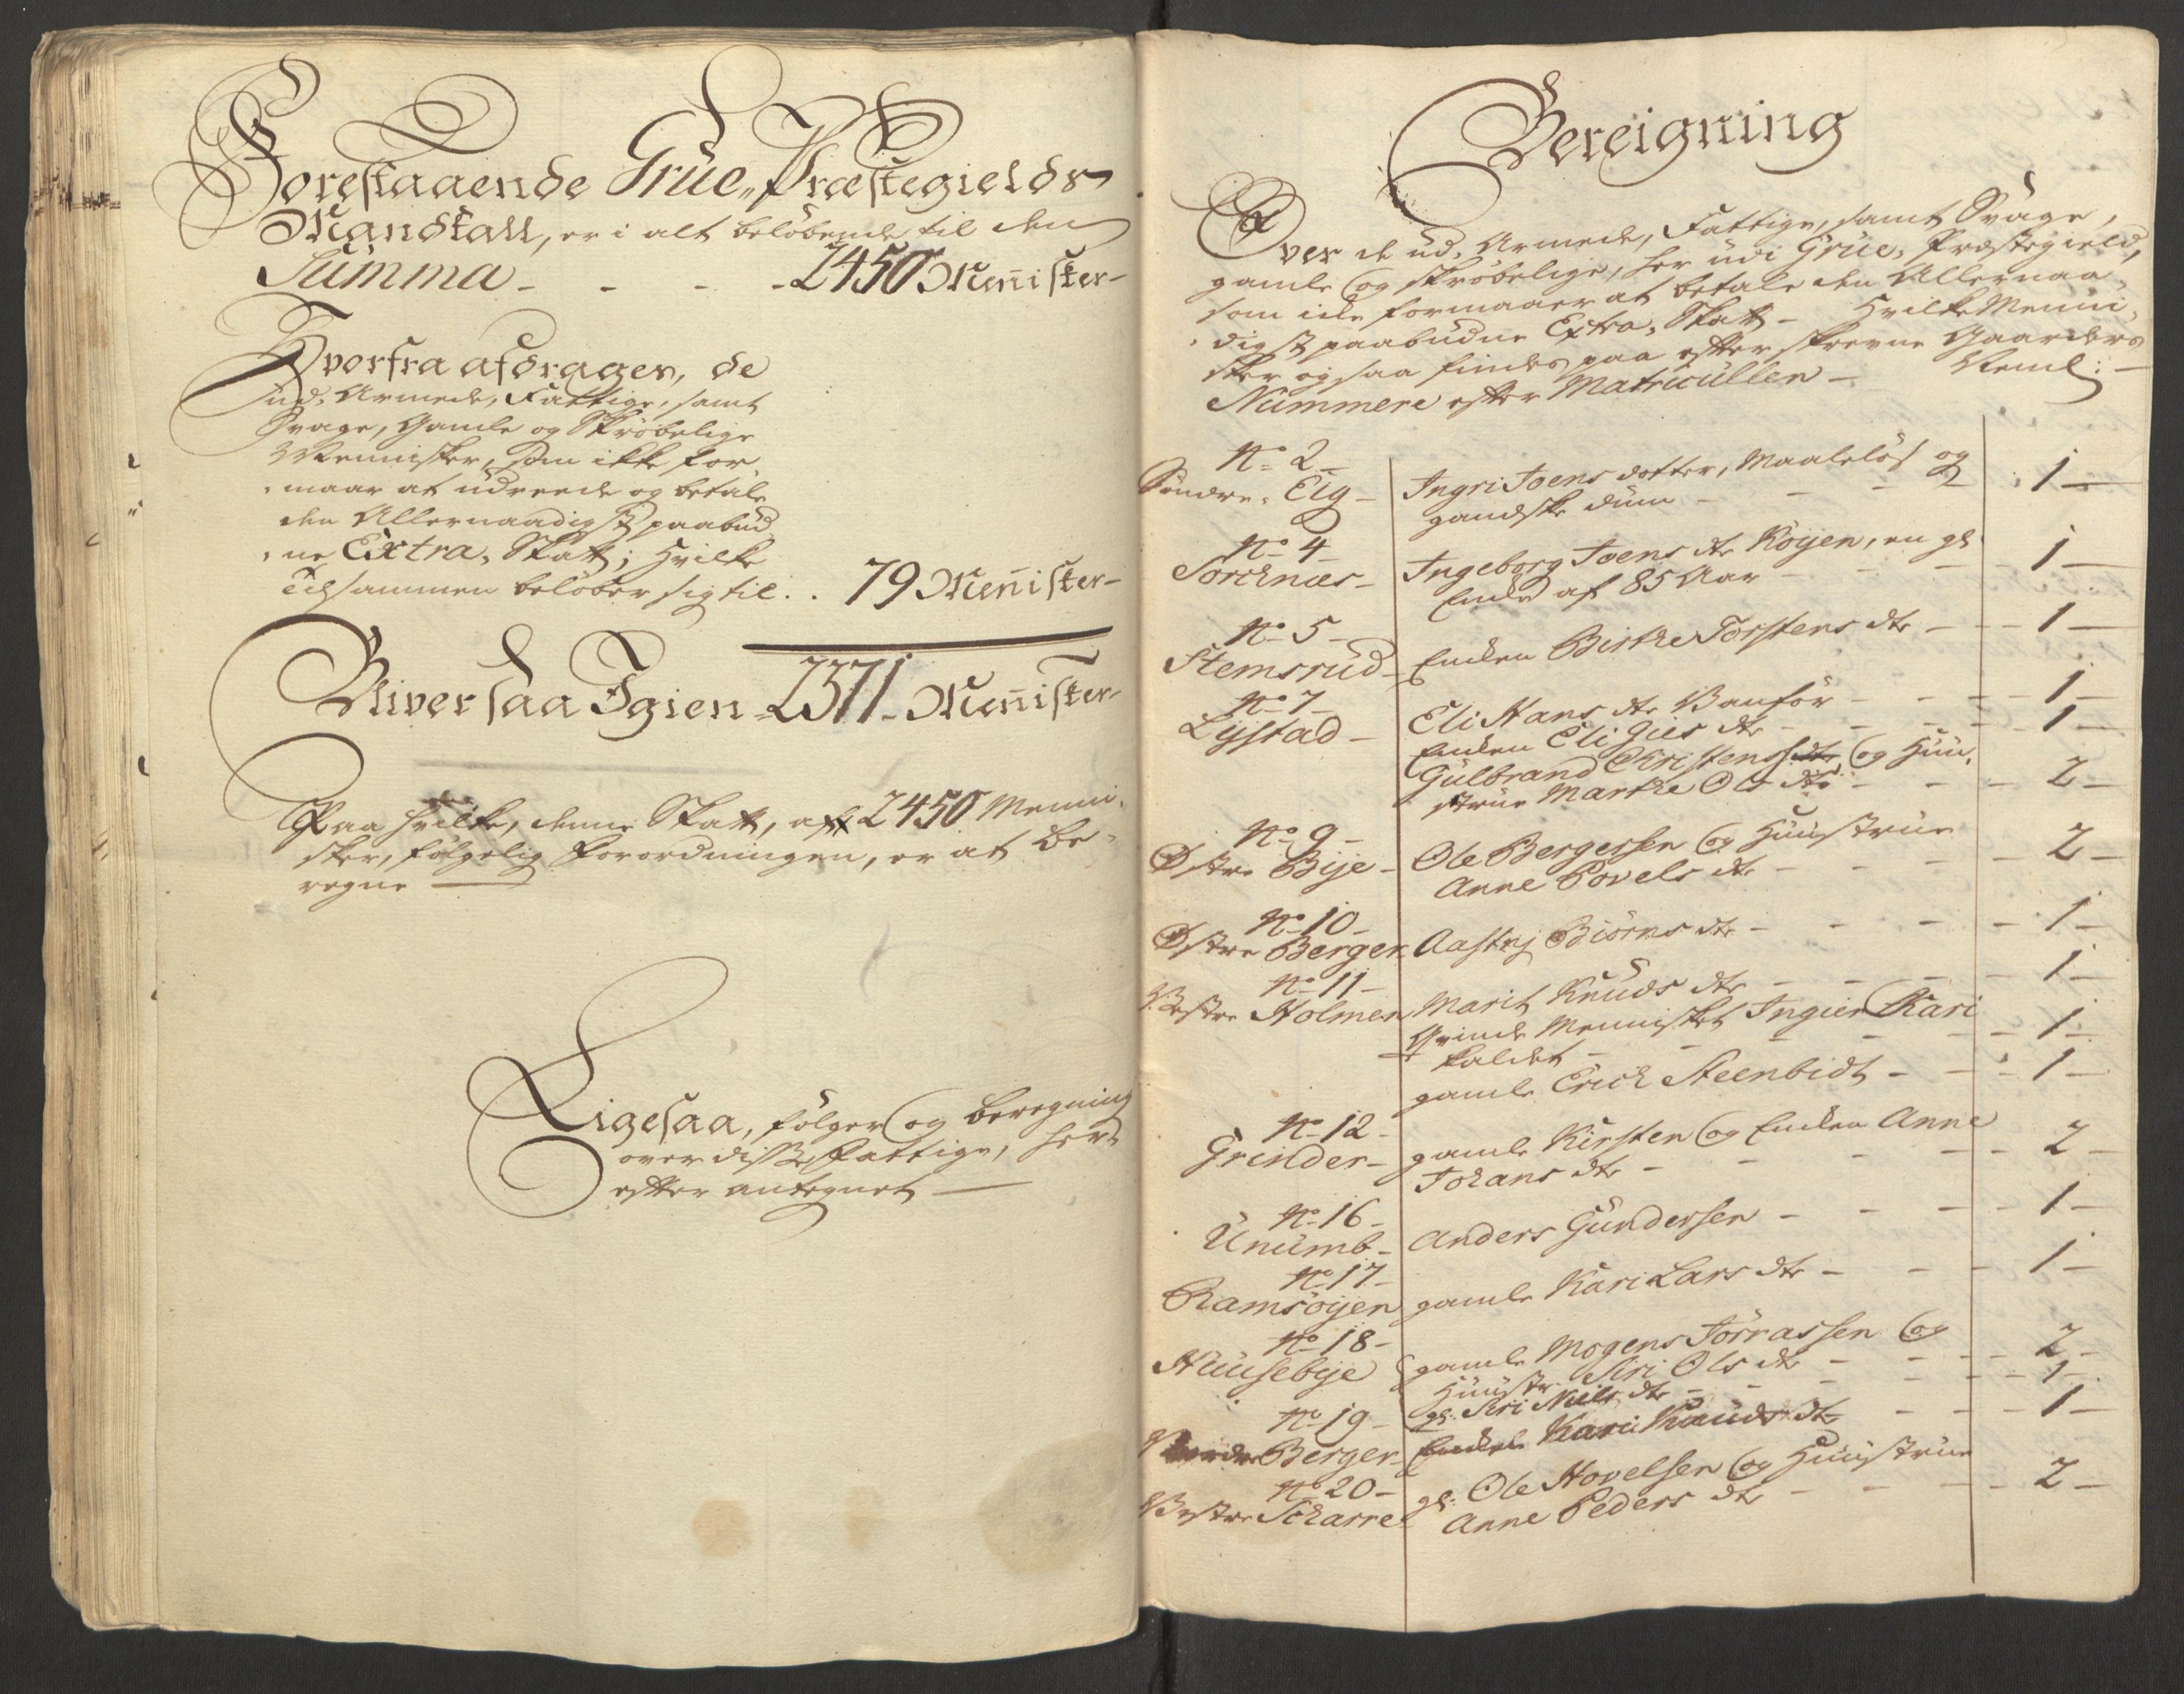 Forestaaende Grue, Præstegields
Mandtall, er i alt beløbende til den
Summa - - - - 2450 Mennister-
Hvorfra afdrages, de
ud, Armede, Fattige, samt
Svage, Gamle og Skrøbelige
Mennisker, som ikke for,
maar at udreede og betale
den Allernaadigst paabud,
ne Extra, Skatt; hvilke
Tilsammen beløber sig til . . 79 Mennister-
Bliver saa Igien - 2371 - Mennister-
Paa hvilke, denne Skatt, aff 2450 Menni,
sker, følgelig Forordningen, er at be,
regne —
Ligesaa, følger og beregning
over disse Fattige, her,
effter antegnet —
Bereigning
Over de ud, Armede, Fattige, samt Svage,
gamle og skrøbelige, her udi Grue, Præstegield,
som icke formaaer at betale den Allernaa,
digst paabudne Extra, Skatt - Hvilke Menni,
sker og saa findes paa effter skrevne Gaarders
Nummere effter Matricullen - Neml: -
No 2 -
Søndre, Eig - Ingri Joens dotter, Maaleløs og
gandske dum - - - - 1 -
No 4 -
Sorcknæs - Ingeborg Joens dtr Køijen, en gl
Encke af 85 Aar - - - 1 -
No 5 -
Stemsrud - Encken Birthe Torstens dtr - - 1 -
No 7 -
Lystad - Eli Hans dtr Vanfør - - - 1 -
Encken Eli Gies dtr - - - 1 -
Gulbrand Christens dtr og Huu,
strue Marthe Ols dtr - - - 2 -
No 9 -
Østre Bije - Ole Bergersen og Huustrue
Anne Povels dtr - - - 2 -
No 10 -
Østre Berger Aastrj Biørns dtr - - - 1 -
No 11 -
Vestre Holmen Marit Knuds dtr - - - 1 -
Qvinde Mennisket Ingier Kari
kaldet - - - - 1 -
gamle Erich Steenbidt - - 1 -
No 12 -
Grinder - gamle Kirsten og Encken Anne
Johans dtr - - - - 2 -
No 16 -
Unumb - Anders Gundersen - - - 1 -
No 17 -
Ramsøijen gamle Kari Lars dtr - - - 1 -
No 18 -
Huusebije gamle Mogens Jørrassen og
Huustr Siri Ols dtr - - - 2 -
gl: Siri Niels dtr - - - 1 -
No 19 -
Berger - Encken Kari Knuds dtr - - 1 -
No 20 -
Vestre Scharre gl: Ole Hovelsen og Huustrue
Anne Peders dtr - - - 2 -